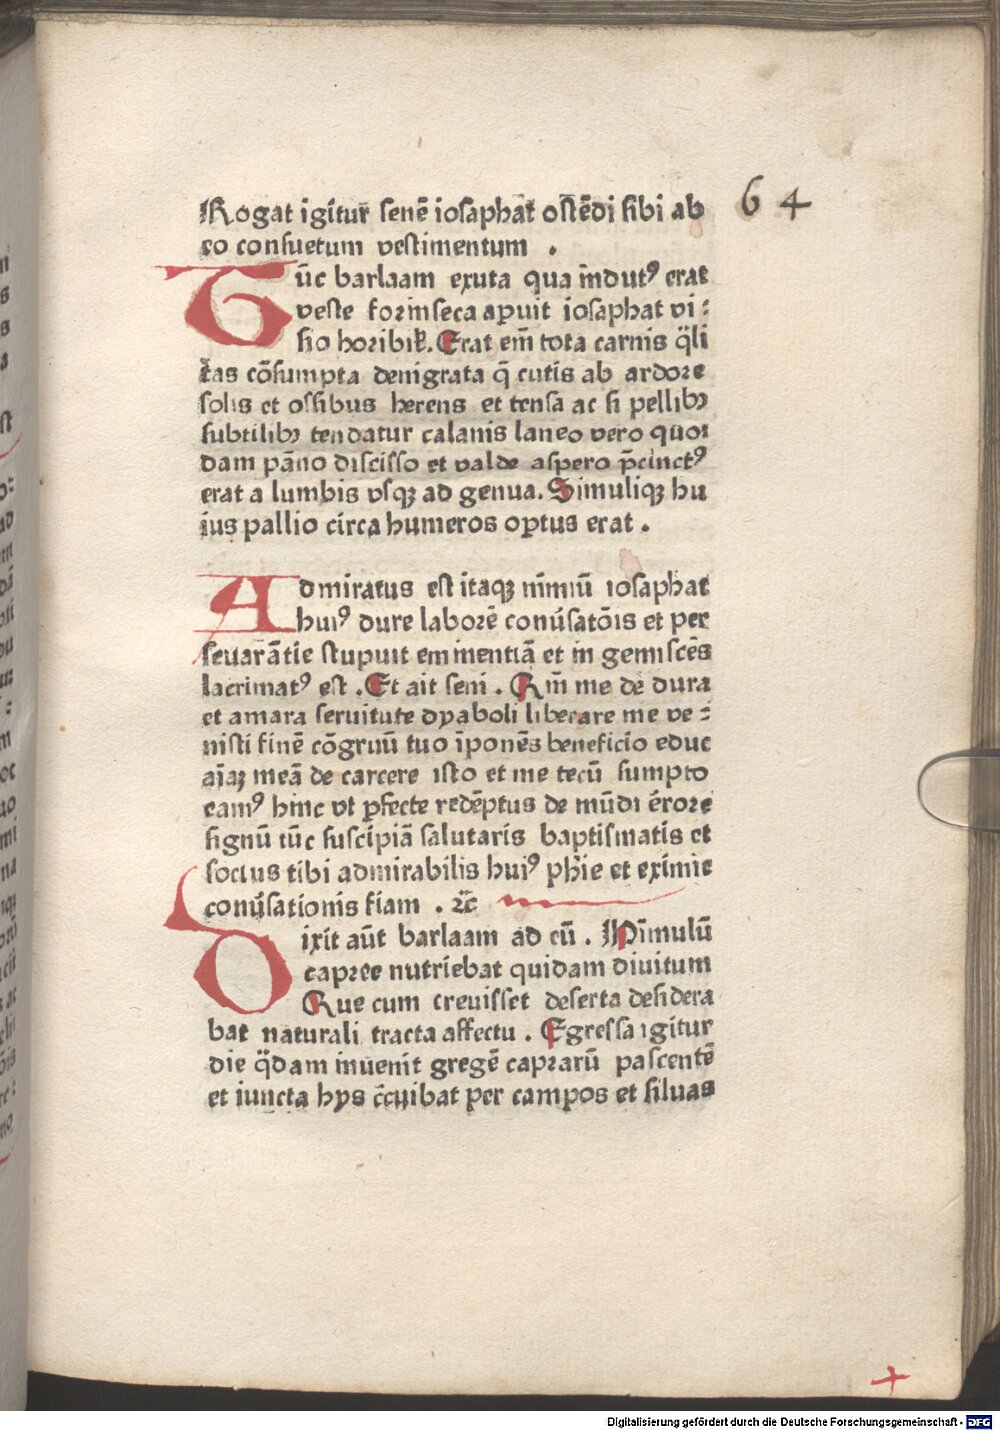 Rogat igitur senē iosaphat ostēdi sibi ab
eo consuetum vestimentum .
64
Tūc barlaam exuta qua īndutꝰ erat
veste forinseca aꝑuit iosaphat vi :
sio horibił. Erat em̄ tota carnis q̈li
tas cōsumpta denigrata q̄ cutis ab ardore
solis et ossibus herens et tensa ac si pellibꝫ
subtilibꝫ tendatur calanis laneo vero quo:
dam pāno discisso et valde aspero p̄cinctꝰ
erat a lumbis vsqꝫ ad genua. Simuliqꝫ hu
ius pallio circa humeros oꝑtus erat .
Admiratus est itaqꝫ nīmiū iosaphat
huiꝰ dure laborē conūsatōis et per
seuarātie stupuit eminentiā et in gemiscēs
lacrimatꝰ est . Et ait seni . Qm̄ me de dura
et amara seruitute dyaboli liberare me ve :
nisti finē cōgruū tuo īponēs beneficio educ
aīaꝫ meā de carcere isto et me tecū sumpto
eamꝰ hinc vt ꝑfecte redēptus de mūdi érore
signū tūc suscipiā salutaris baptismatis et
socius tibi admirabilis huiꝰ phīe et eximie
conūsationis fiam . ⁊c̄
Dixit aūt barlaam ad eū . Hīmulū
capree nutriebat quidam diuitum
Que cum creuisset deserta desidera
bat naturali tracta affectu . Egressa igitur
die q̈dam inuenit gregē caprarū pascentē
et iuncta hys c̄cuibat per campos et siluas
Digitalisierung gefördert durch die Deutsche Forschungsgemeinschaft - DFG